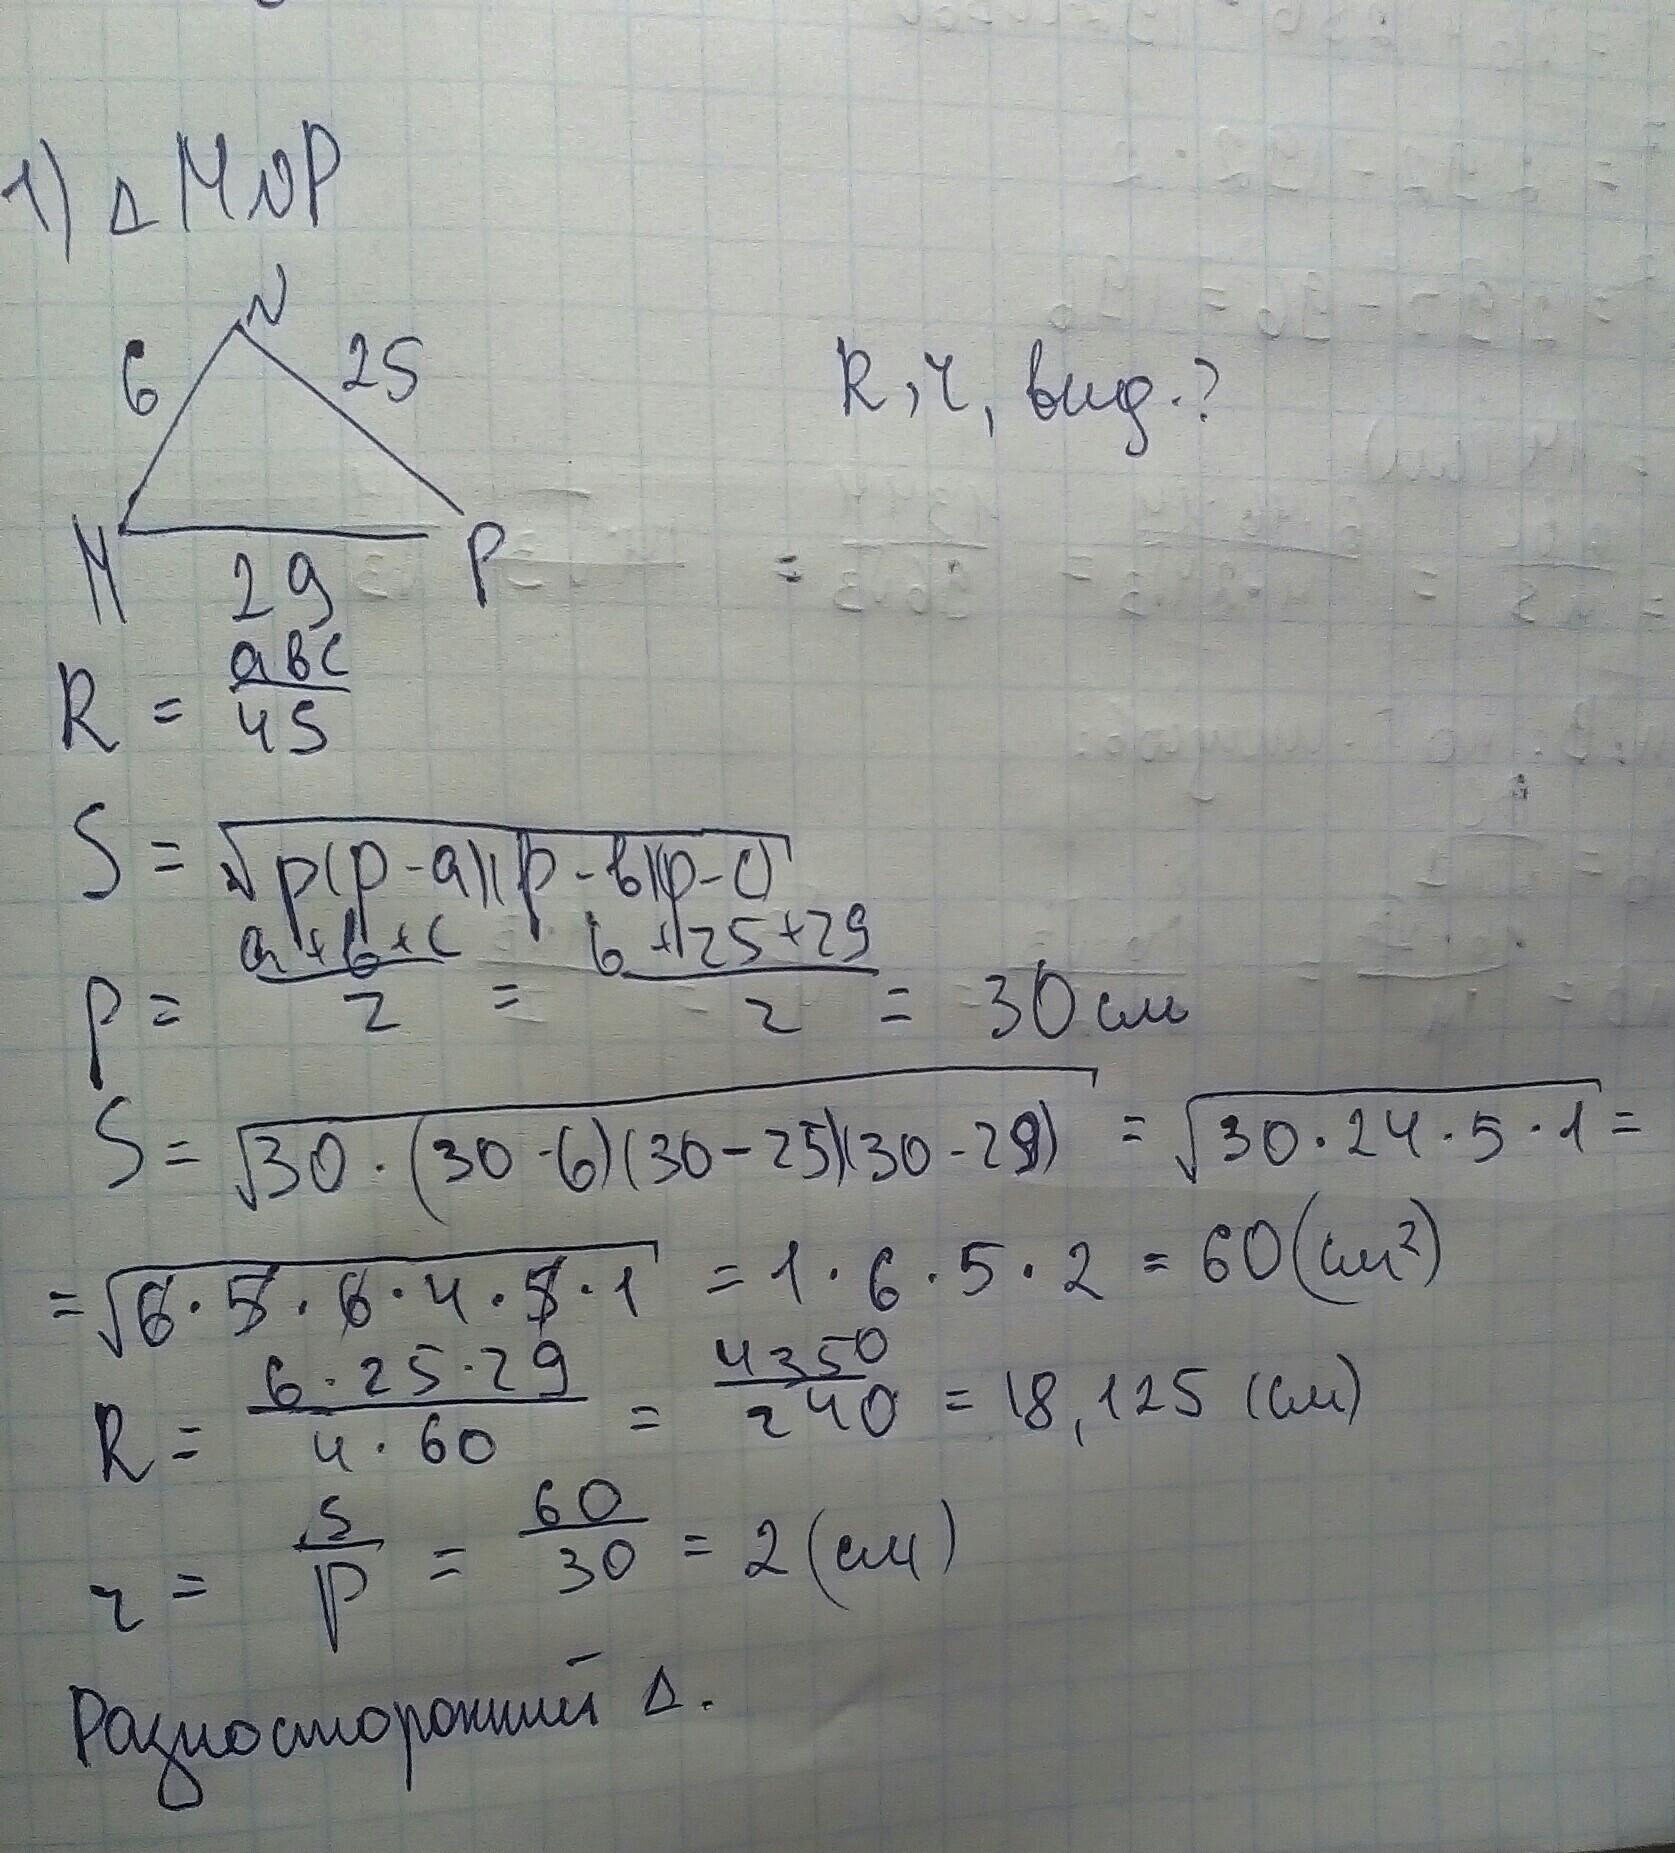 1) Δ MNP
N
6 25
R, r, вид.?
M 29 P
R = abc/4S
S = √p(p-a)(p-b)(p-c)
p = a+b+c/2 = 6+25+29/2 = 30 см
S = √30·(30-6)(30-25)(30-29) = √30·24·5·1 =
= √6·5·6·4·5·1 = 1·6·5·2 = 60 (см²)
R = 6·25·29/4·60 = 4350/240 = 18,125 (см)
r = S/p = 60/30 = 2 (см)
Разносторонний Δ.